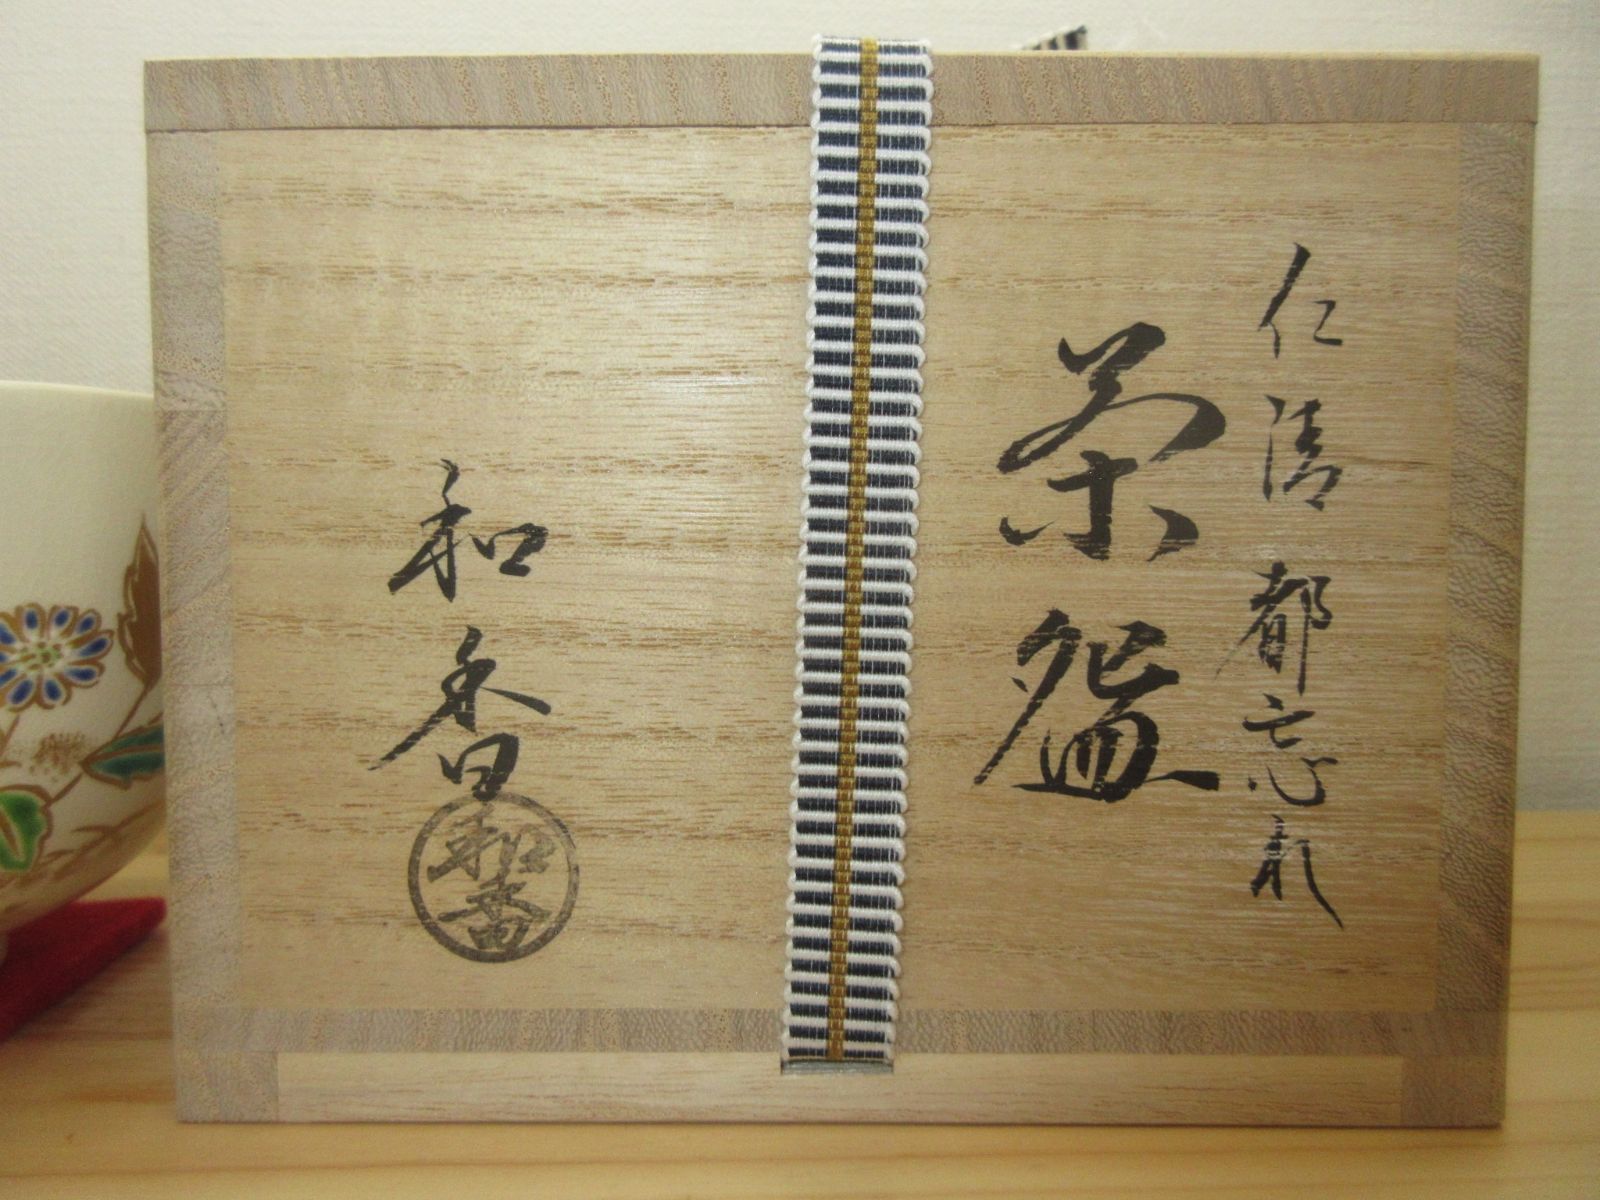 仁清 都忘れ
茶盌
和香
和香